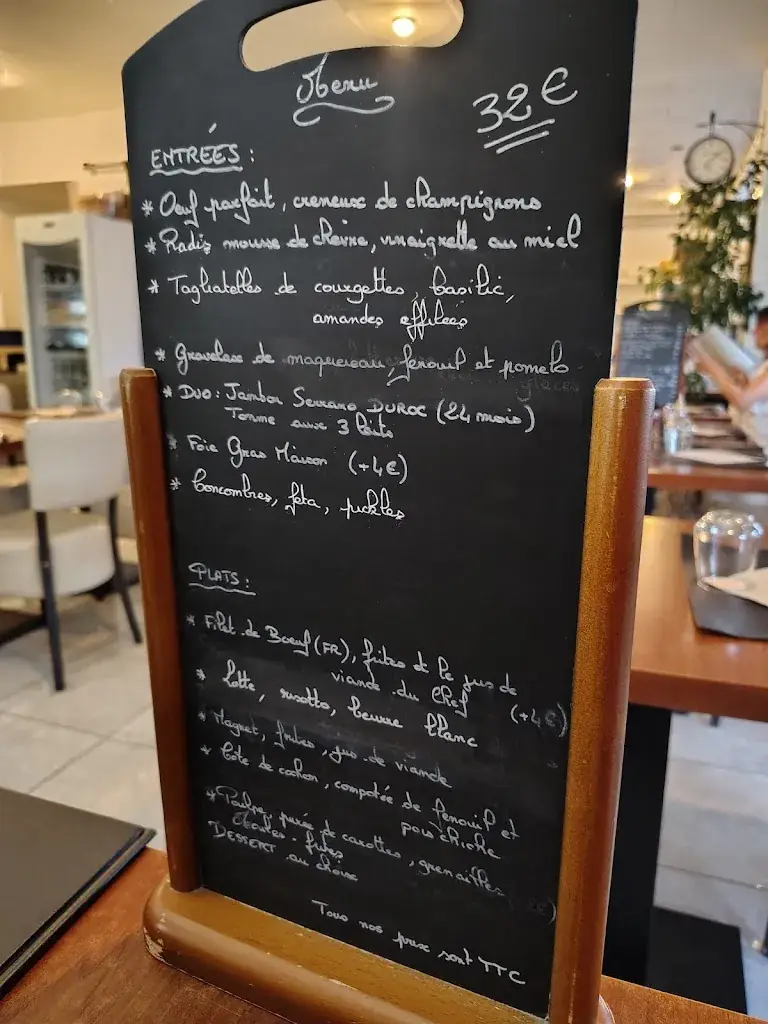 Menu
32€
ENTRÉES :
* Oeuf parfait, crémeux de champignons
* Radis mousse de chèvre, vinaigrette au miel
* Tagliatelles de courgettes, basilic,
amandes effilées
* Gravelax de maquereau, fenouil et pomelo
* DUO : Jambon Serrano DUROC (24 mois)
Tomme aux 3 laits
* Foie Gras Maison (+4€)
* Concombres, feta, pickles
PLATS :
* Filet de Boeuf (FR), frites et le jus de
viande du Chef (+4€)
* Lotte, risotto, beurre blanc
* Magret, frites, jus de viande
* Côte de cochon, compotée de fenouil et
pois chiche
* Poulpe, purée de carottes, grenailles
frites
DESSERT au choix
Tous nos prix sont TTC